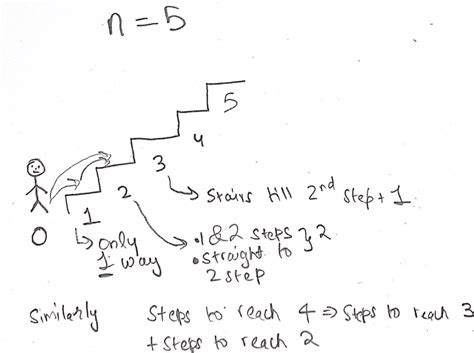 n = 5
5
4
3
→ Stairs till 2nd step + 1
2
• 1 & 2 steps } 2
• straight to
2 step
1
↳ only
1 way
0
Similarly Steps to reach 4 ⇒ Steps to reach 3
+ Steps to reach 2